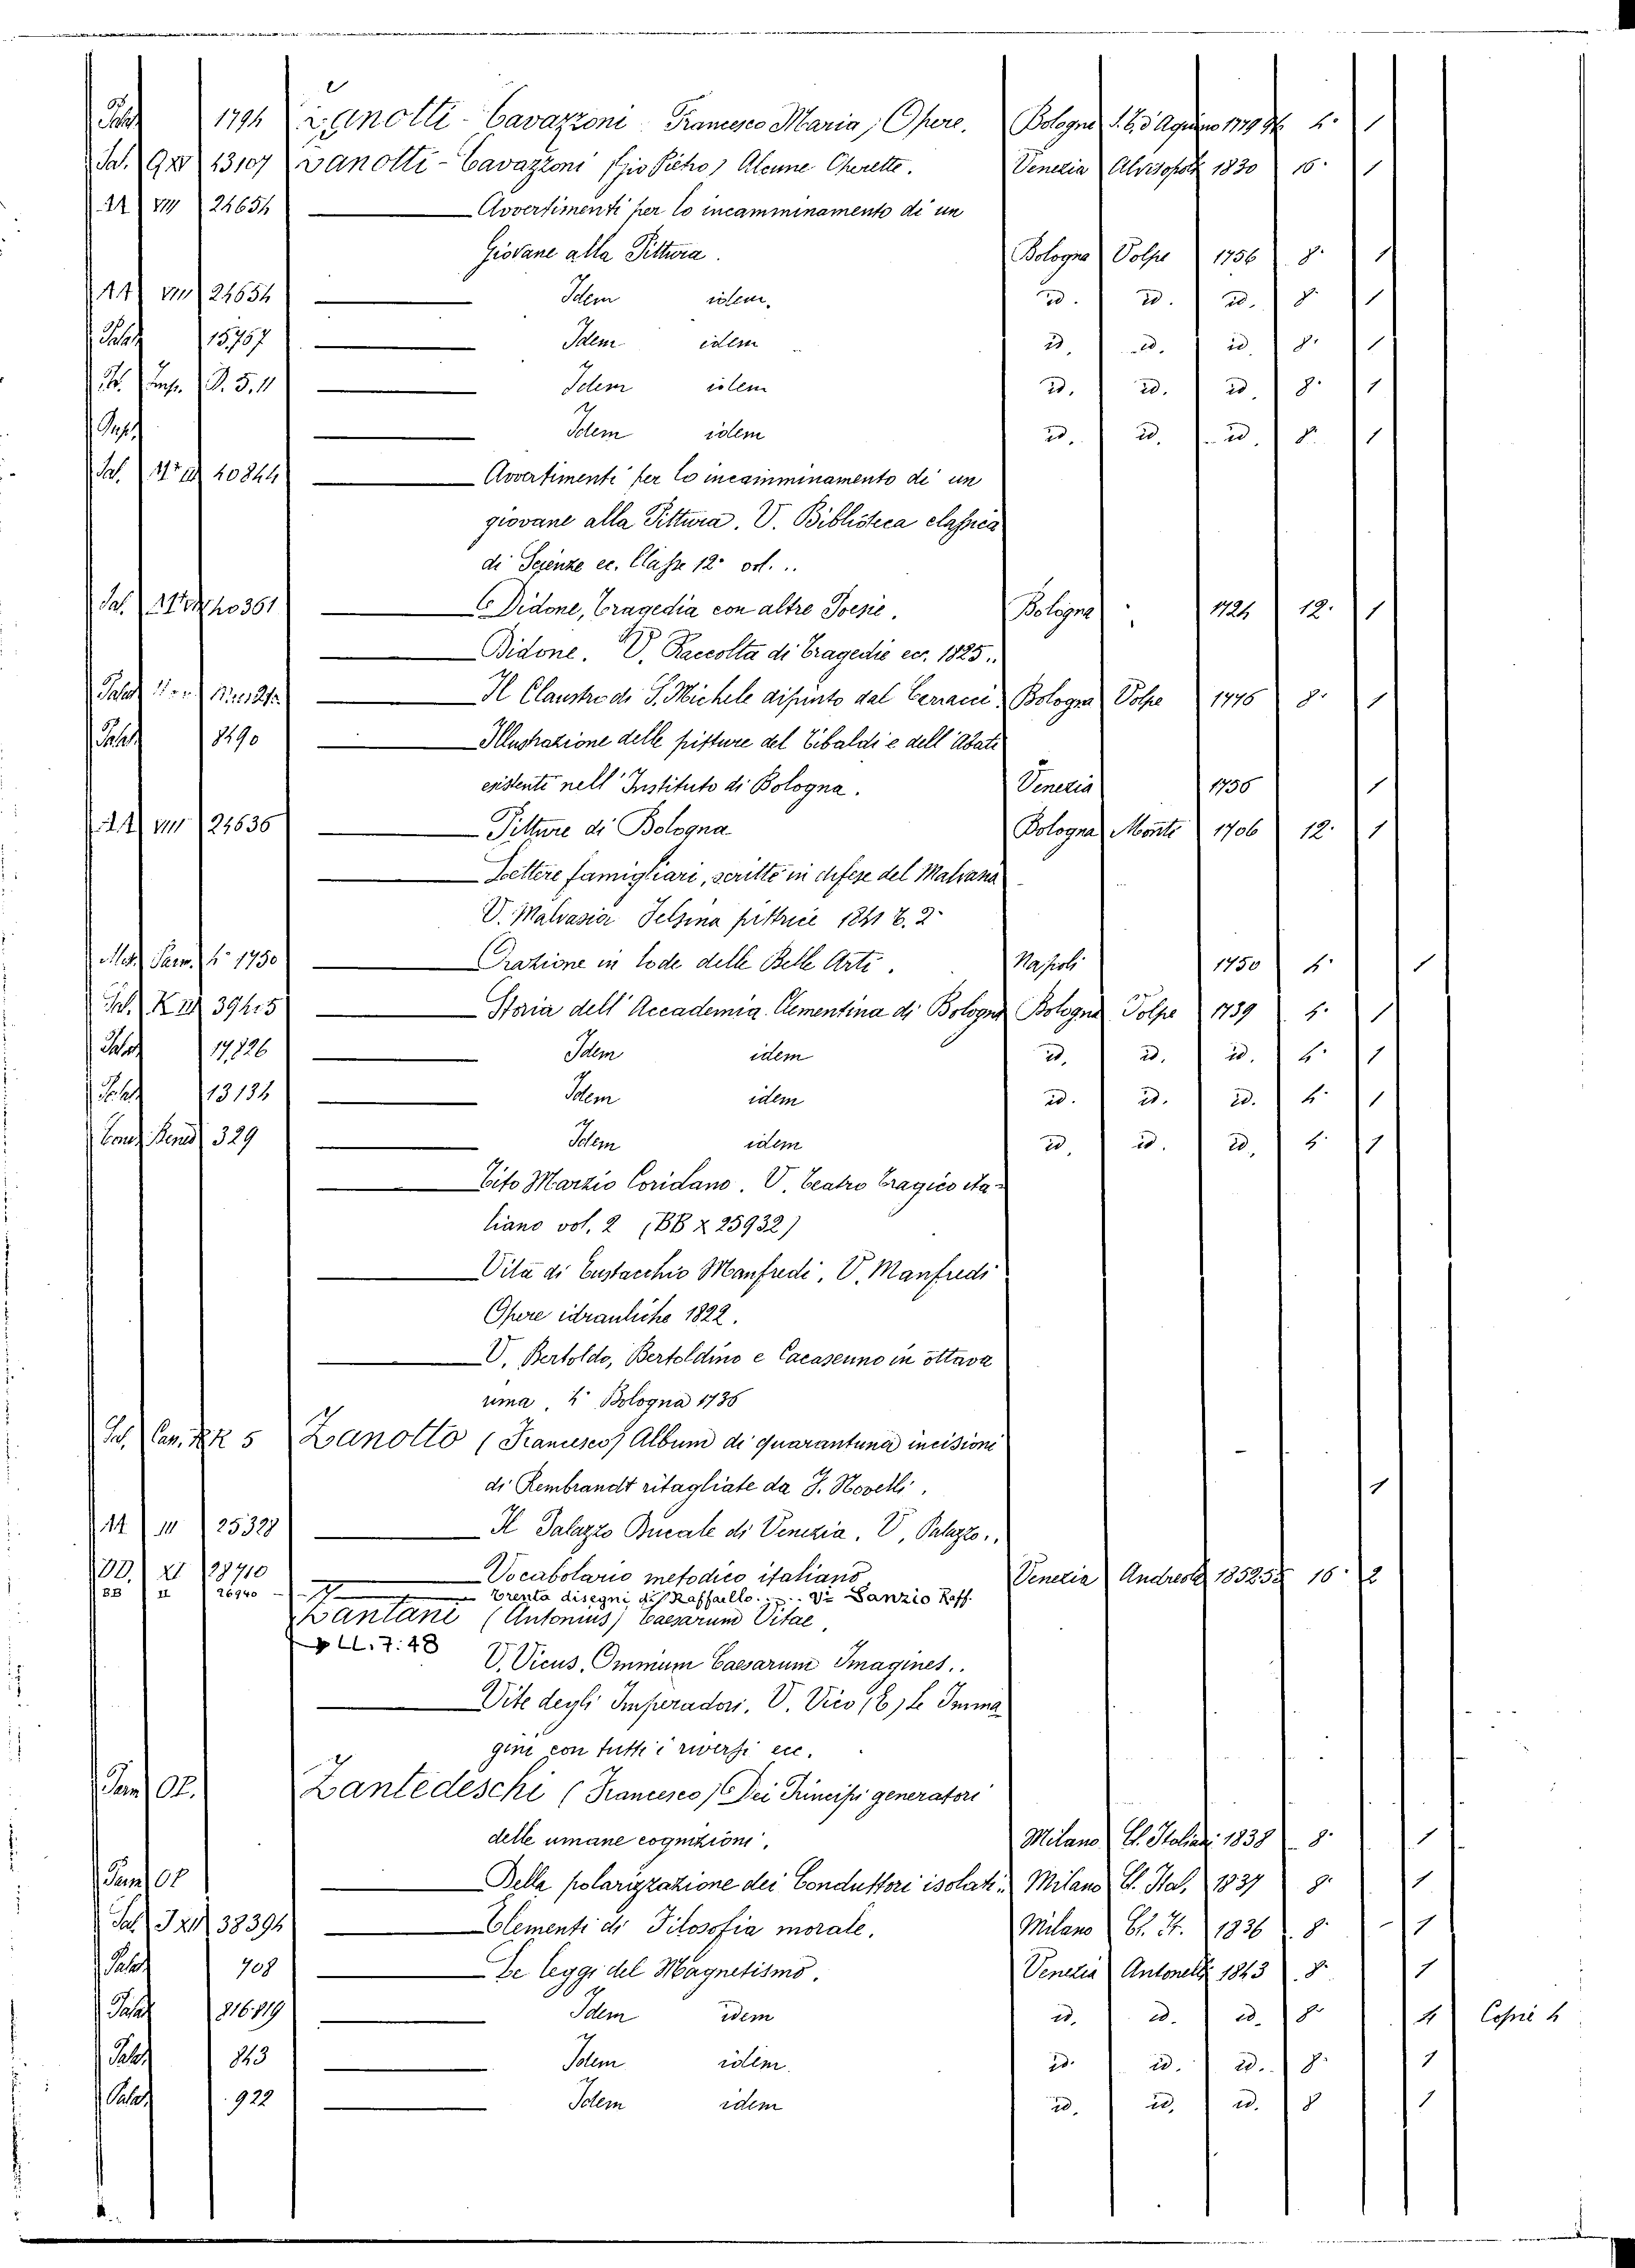 Palat 1794 Zanotti-Cavazzoni Francesco Maria, Opere. Bologna S. T. d'Aquino 1779 4. 1
Sal. 13107 Zanotti-Cavazzoni (Gio Pietro) Alcune Operette. Venezia Alvisopoli 1830 16. 1
14 VIII 24654 Avvertimenti per lo incamminamento di un
Giovane alla Pittura. Bologna Volpe 1756 8. 1
14 VIII 24654 Idem idem. id. id. id. 8. 1
Palat 15757 Idem idem id. id. id. 8. 1
Imp. P. 5. 11 Idem idem id. id. id. 8. 1
Idem idem id. id. id. 8. 1
Sal. 40844 Avvertimenti per lo incamminamento di un
giovane alla Pittura. V. Biblioteca classica
di Scienze ec. Classe 12.
Sal. 40361 Didone, Tragedia con altre Poesie. Bologna 1724 12. 1
Didone. V. Raccolta di Tragedie ec. 1825.
Palat Il Claustro di S. Michele dipinto dal Carracci Bologna Volpe 1776 8. 1
Palat 8490 Illustrazione delle pitture del Tibaldi e dell'Abati
esistente nell'Instituto di Bologna. Venezia 1756 1
14 VIII 24636 Pitture di Bologna Bologna Monti 1706 12. 1
Lettere famigliari, scritte in difesa del Malvasia
V. Malvasia Felsina pittrice 1841 T. 2
1750 Orazione in lode delle Belle Arti. Napoli 1750 4. 1
Sal. 39415 Storia dell'Accademia Clementina di Bologna Bologna Volpe 1739 4. 1
Palat 17,826 Idem idem id. id. id. 4. 1
Palat 13134 Idem idem id. id. id. 4. 1
329 Idem idem id. id. id. 4. 1
Tito Marzio Coriolano. V. Teatro Tragico Ita-
liano vol. 2 (BB X 25932)
Vita di Eustacchio Manfredi, V. Manfredi
Opere idrauliche 1822.
V. Bertoldo, Bertoldino e Cacasenno in ottava
rima, 4. Bologna 1736
Sal. 5 Zanotto (Francesco) Album di quarantuna incisione
di Rembrandt ritagliate da F. Novelli. 1
14 III 25328 Il Palazzo Ducale di Venezia. V. Palazzo.
DD. XI 28710 Vocabolario metodico italiano Venezia Andreola 1852 55 16. 2
BB II 26940 Trenta disegni di Raffaello. V. Sanzio Raff.
Zantani (Antonius) Caesarum Vitae,
LL. 7. 48 V. Vicus, Omnium Caesarum Imagines.
Vite degli Imperadori. V. Vico (E) Le Imma
gini con tutti i riversi ecc.
Zantedeschi (Francesco) Dei Principi generatori
delle umane cognizioni. Milano 1838 8. 1
Della polarizzazione dei Conduttori isolati. Milano Cl. Ital. 1837 8. 1
Sal. 38394 Elementi di Filosofia morale. Milano Cl. It. 1836 8. 1
Palat 708 Le leggi del Magnetismo. Venezia Antonelli 1843 8. 1
Palat 816.819 Idem idem id. id. id. 8. 4 Copie 4
Palat 843 Idem idem id. id. id. 8. 1
Palat 922 Idem idem id. id. id. 8 1